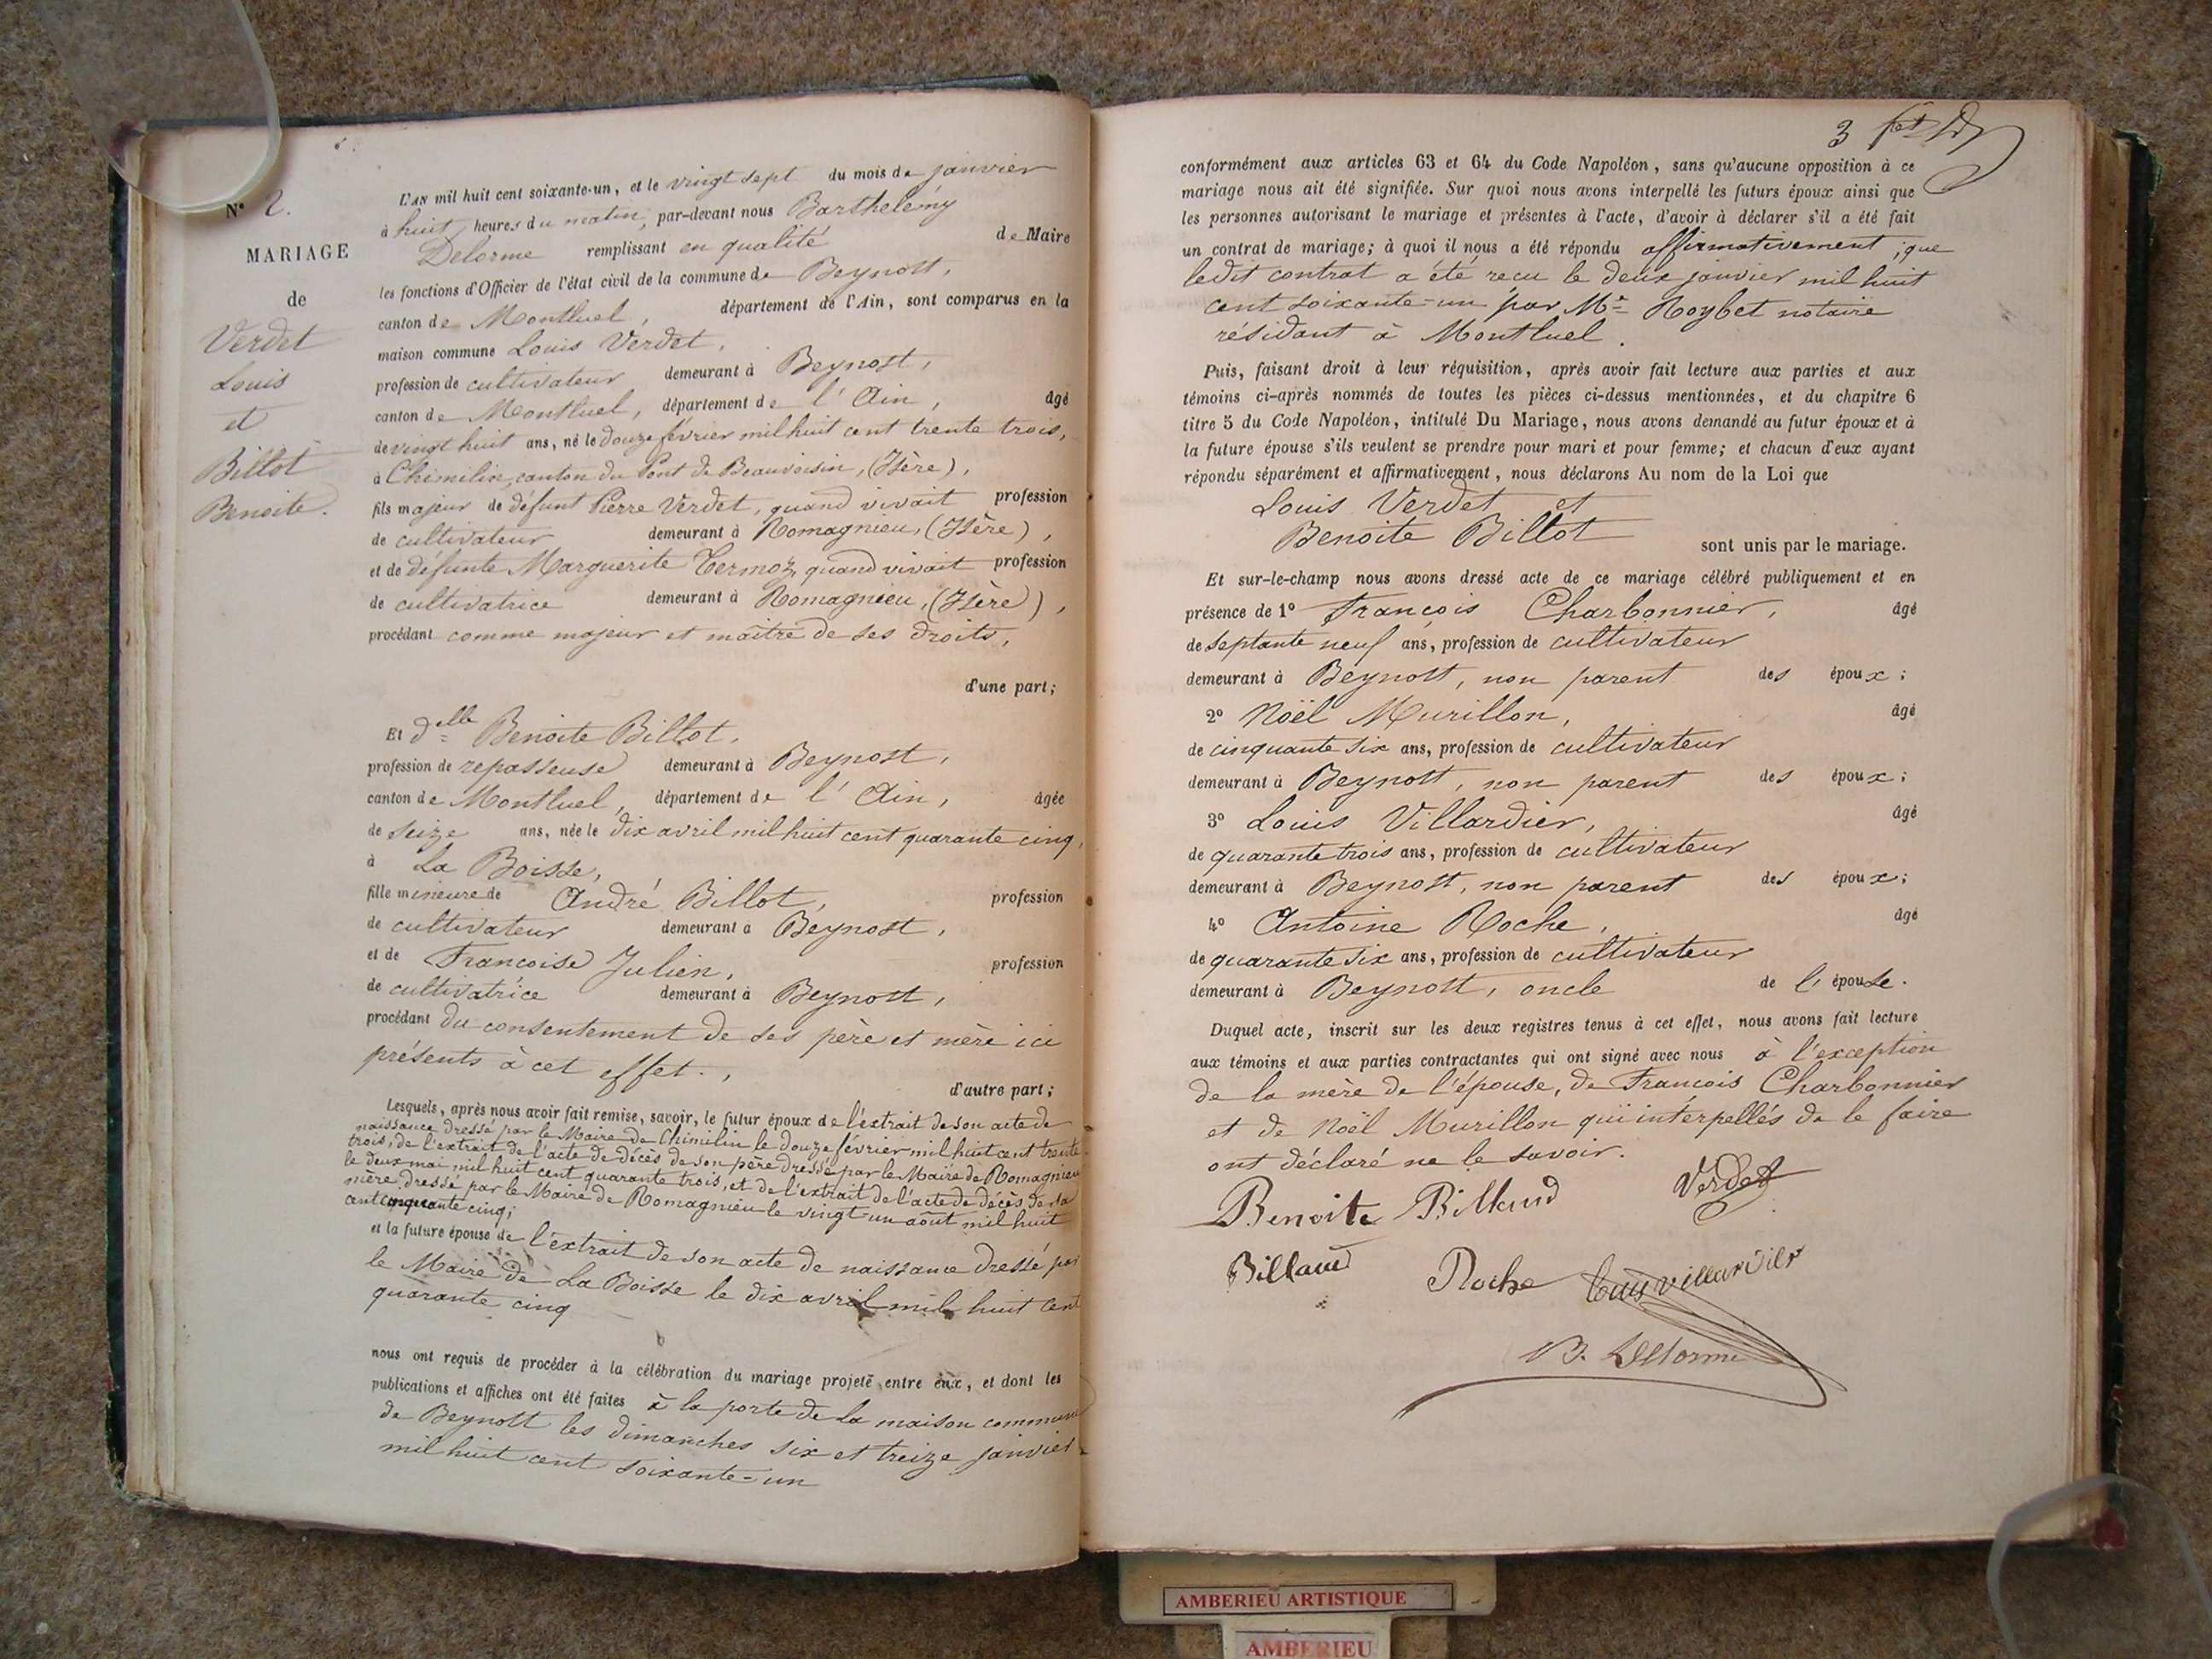 N° 2.
MARIAGE
de
Verdet
Louis
et
Billot
Benoite.
L'AN mil huit cent soixante-un, et le vingt sept du mois de janvier
à huit heures du matin, par-devant nous Barthelémy
Delorme remplissant en qualité de Maire
les fonctions d'Officier de l'état civil de la commune de Beynost,
canton de Montluel, département de l'Ain, sont comparus en la
maison commune Louis Verdet,
profession de cultivateur demeurant à Beynost,
canton de Montluel, département de l'Ain, âgé
de vingt huit ans, né le douze février mil huit cent trente trois,
à Chimilin, canton du Pont de Beauvoisin, (Isère),
fils majeur de défunt Pierre Verdet, quand vivait profession
de cultivateur demeurant à Romagnieu, (Isère),
et de défunte Marguerite Termoz, quand vivait profession
de cultivatrice demeurant à Romagnieu, (Isère),
procédant comme majeur et maître de ses droits,
d'une part;
Et d.elle Benoite Billot,
profession de repasseuse demeurant à Beynost,
canton de Montluel, département de l'Ain, âgée
de seize ans, née le dix avril mil huit cent quarante cinq,
à La Boisse,
fille mineure de André Billot, profession
de cultivateur demeurant à Beynost,
et de Françoise Julien, profession
de cultivatrice demeurant à Beynost,
procédant du consentement de ses père et mère ici
présents à cet effet.,
d'autre part;
Lesquels, après nous avoir fait remise, savoir, le futur époux de l'extrait de son acte de
naissance dressé par le Maire de Chimilin le douze février mil huit cent trente
trois, de l'extrait de l'acte de décès de son père dressé par le Maire de Romagnieu
le deux mai mil huit cent quarante trois, et de l'extrait de l'acte de décès de sa
mère dressé par le Maire de Romagnieu le vingt-un août mil huit
cent cinquante cinq;
et la future épouse de l'extrait de son acte de naissance dressé par
le Maire de La Boisse le dix avril mil huit cent
quarante cinq
nous ont requis de procéder à la célébration du mariage projeté entre eux, et dont les
publications et affiches ont été faites à la porte de la maison commune
de Beynost les dimanches six et treize janvier
mil huit cent soixante-un
3
conformément aux articles 63 et 64 du Code Napoléon, sans qu'aucune opposition à ce
mariage nous ait été signifiée. Sur quoi nous avons interpellé les futurs époux ainsi que
les personnes autorisant le mariage et présentes à l'acte, d'avoir à déclarer s'il a été fait
un contrat de mariage; à quoi il nous a été répondu affirmativement, que
ledit contrat a été reçu le deux janvier mil huit
cent soixante-un par Me Roybet notaire
résidant à Montluel.
Puis, faisant droit à leur réquisition, après avoir fait lecture aux parties et aux
témoins ci-après nommés de toutes les pièces ci-dessus mentionnées, et du chapitre 6
titre 5 du Code Napoléon, intitulé Du Mariage, nous avons demandé au futur époux et à
la future épouse s'ils veulent se prendre pour mari et pour femme; et chacun d'eux ayant
répondu séparément et affirmativement, nous déclarons Au nom de la Loi que
Louis Verdet et
Benoite Billot sont unis par le mariage.
Et sur-le-champ nous avons dressé acte de ce mariage célébré publiquement et en
présence de 1° François Charbonnier, âgé
de septante neuf ans, profession de cultivateur
demeurant à Beynost, non parent des époux;
2° Noël Murillon, âgé
de cinquante six ans, profession de cultivateur
demeurant à Beynost, non parent des époux;
3° Louis Villardier, âgé
de quarante trois ans, profession de cultivateur
demeurant à Beynost, non parent des époux;
4° Antoine Roche, âgé
de quarante six ans, profession de cultivateur
demeurant à Beynost, oncle de l'épouse.
Duquel acte, inscrit sur les deux registres tenus à cet effet, nous avons fait lecture
aux témoins et aux parties contractantes qui ont signé avec nous à l'exception
de la mère de l'épouse, de François Charbonnier
et de Noël Murillon qui interpellés de le faire
ont déclaré ne le savoir.
Benoite Billaud Verdet
Billaud Roche Louis villardier
B. Delorme
AMBERIEU ARTISTIQUE
AMBERIEU